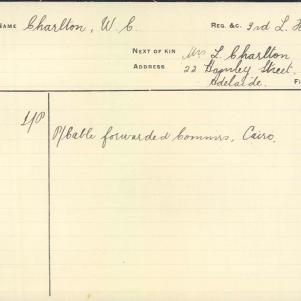 NAME Charlton, W. C. REG. &C. 3rd L. H
NEXT OF KIN Mrs L. Charlton
ADDRESS 22 Street,
Adelaide. F
P/Cable forwarded Commrs, Cairo.